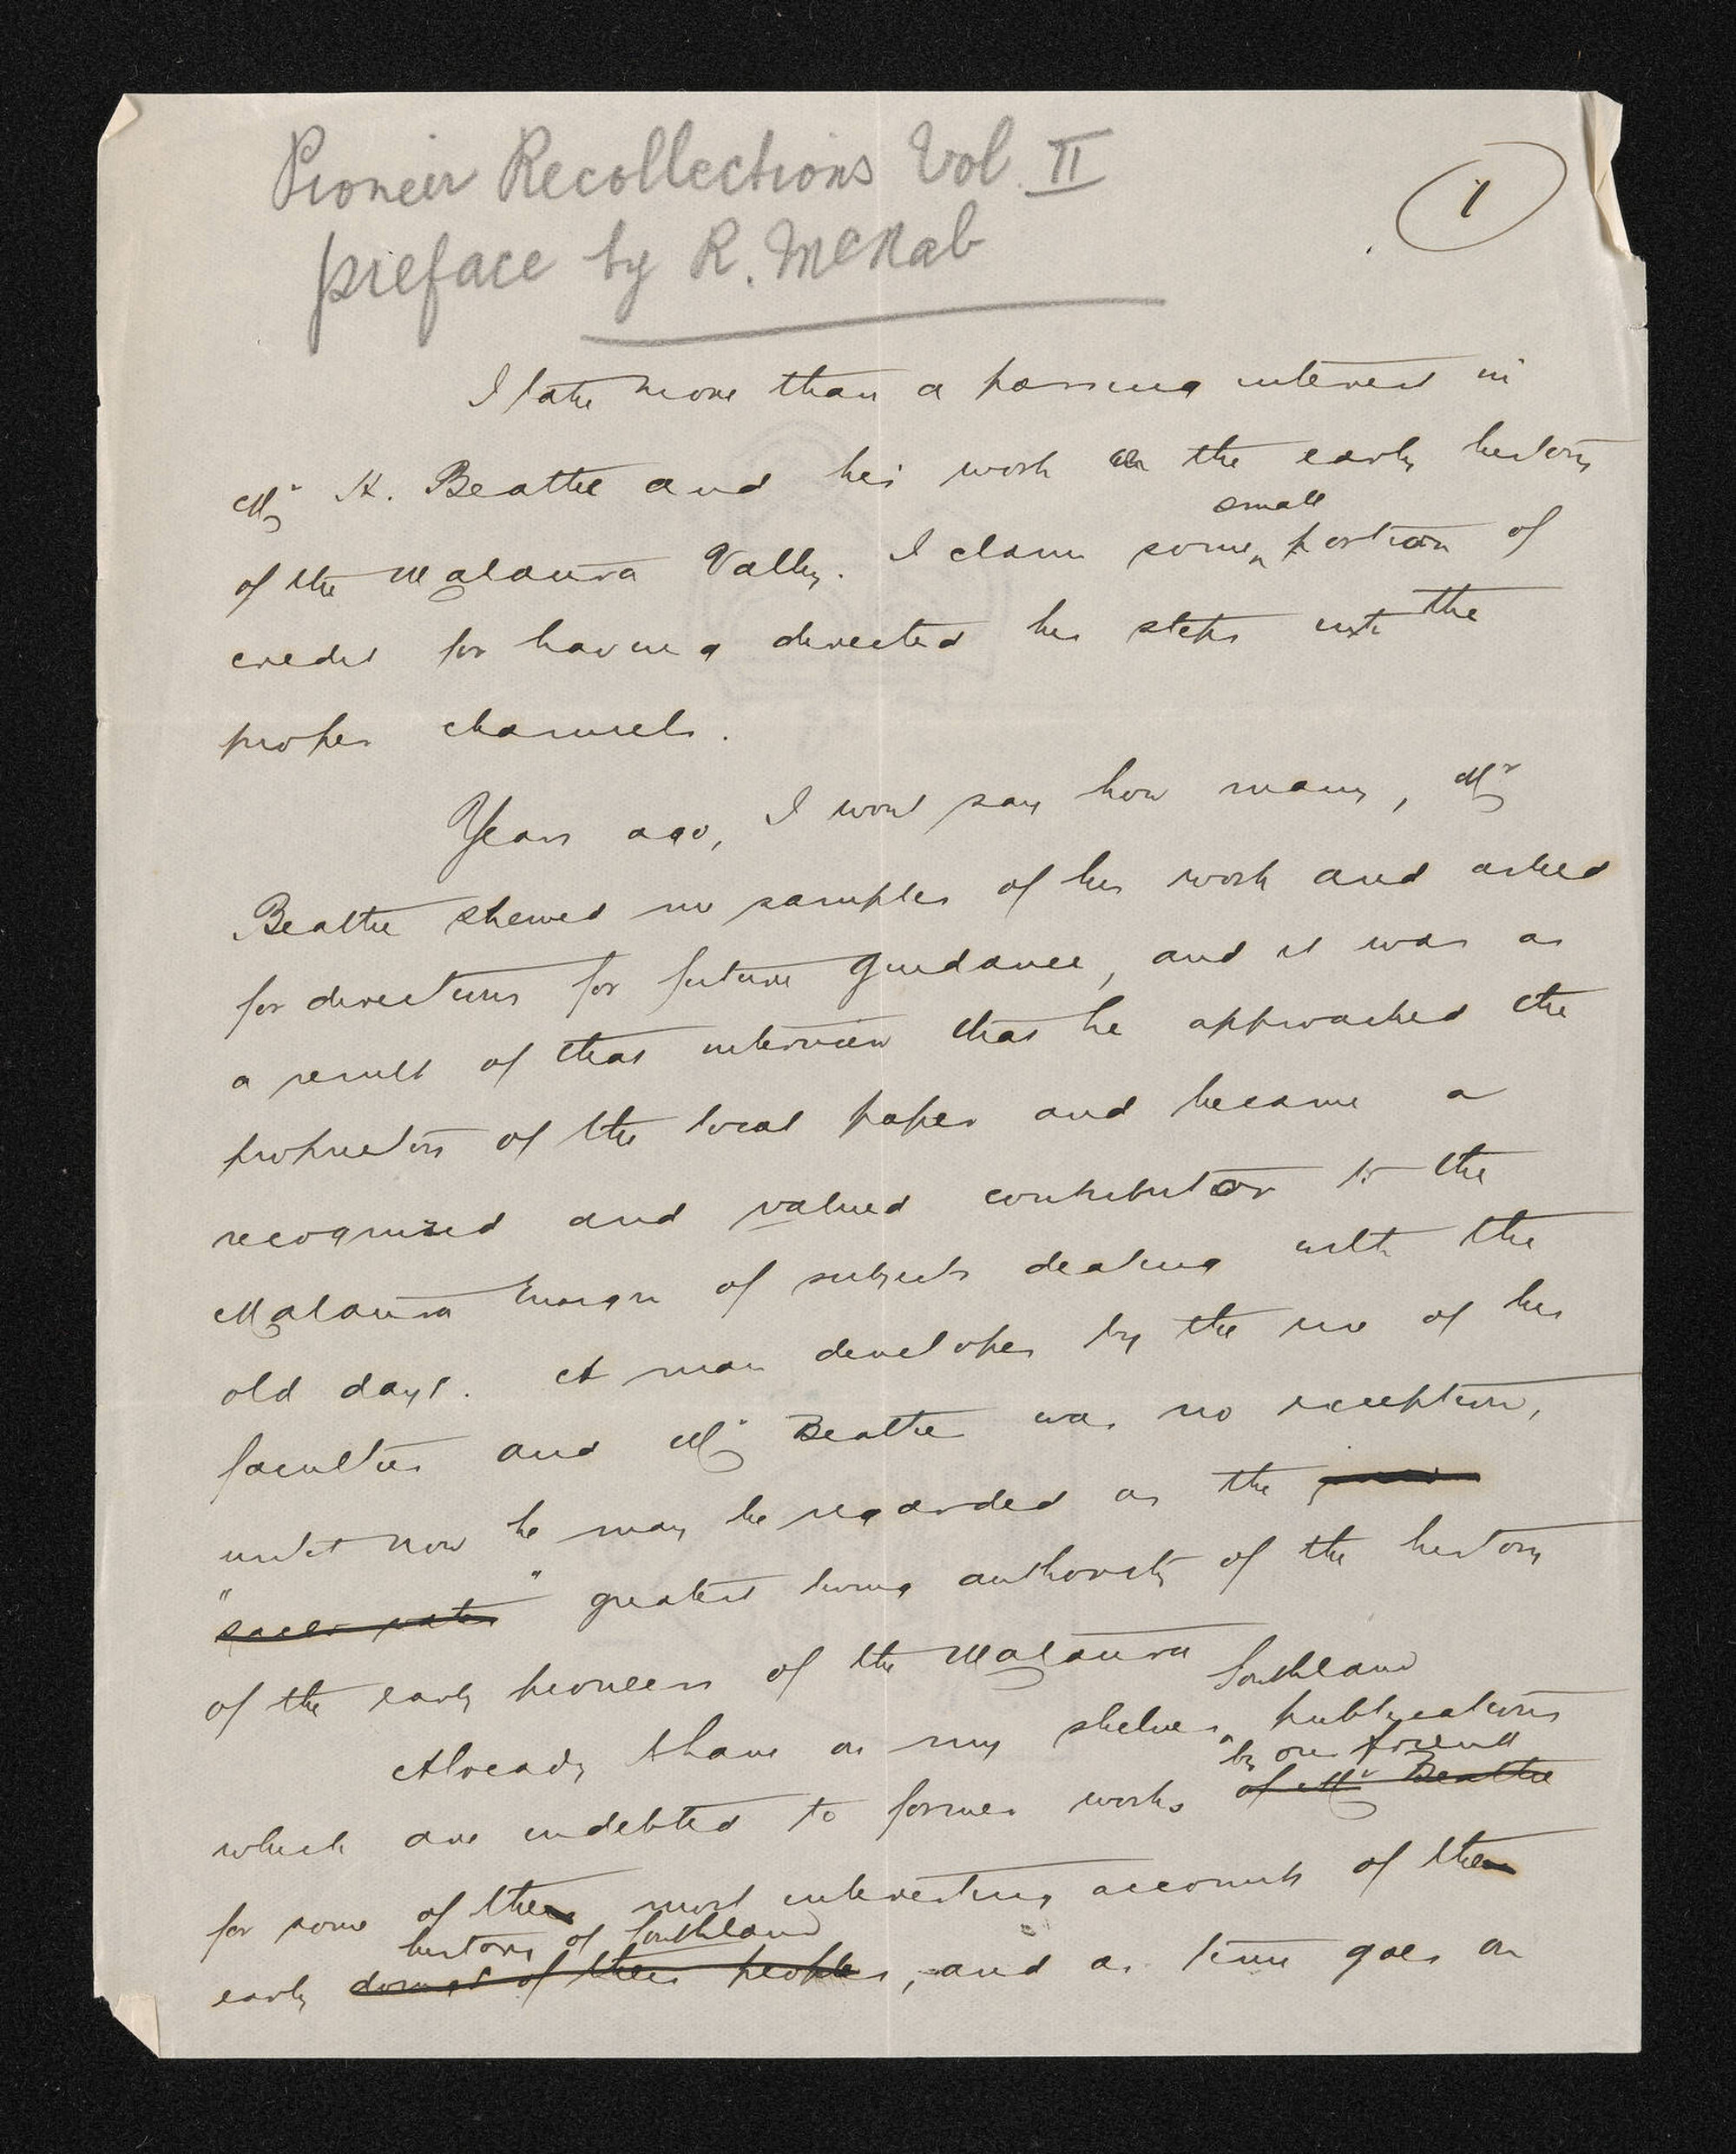 Pioneer Recollections Vol II
preface by R. McNab
1
I take more than a passing interest in
Mr H. Beattie and his work on the early history
small
of the Mataura Valley. I claim some ^ portion of
credit for having directed his steps into the
proper channels.
Years ago, I wont say how many, Mr
Beattie shewed me samples of his work and asked
for directions for future guidance, and it was as
a result of that interview that he approached the
proprietors of the local paper and became a
recognized and valued contributor to the
Mataura Ensign of subjects dealing with the
old days. A man developes by the use of his
faculties and Mr Beattie was no exception,
until now he may be regarded as the
"sacer vates" greatest living authority of the history
of the early pioneers of the Mataura
Southland
Already I have on my shelves ^ publications
by our friend
which are indebted to former works of Mr Beattie
for some of the most interesting accounts of the
history of Southland
early doings of their peoples, and as time goes on